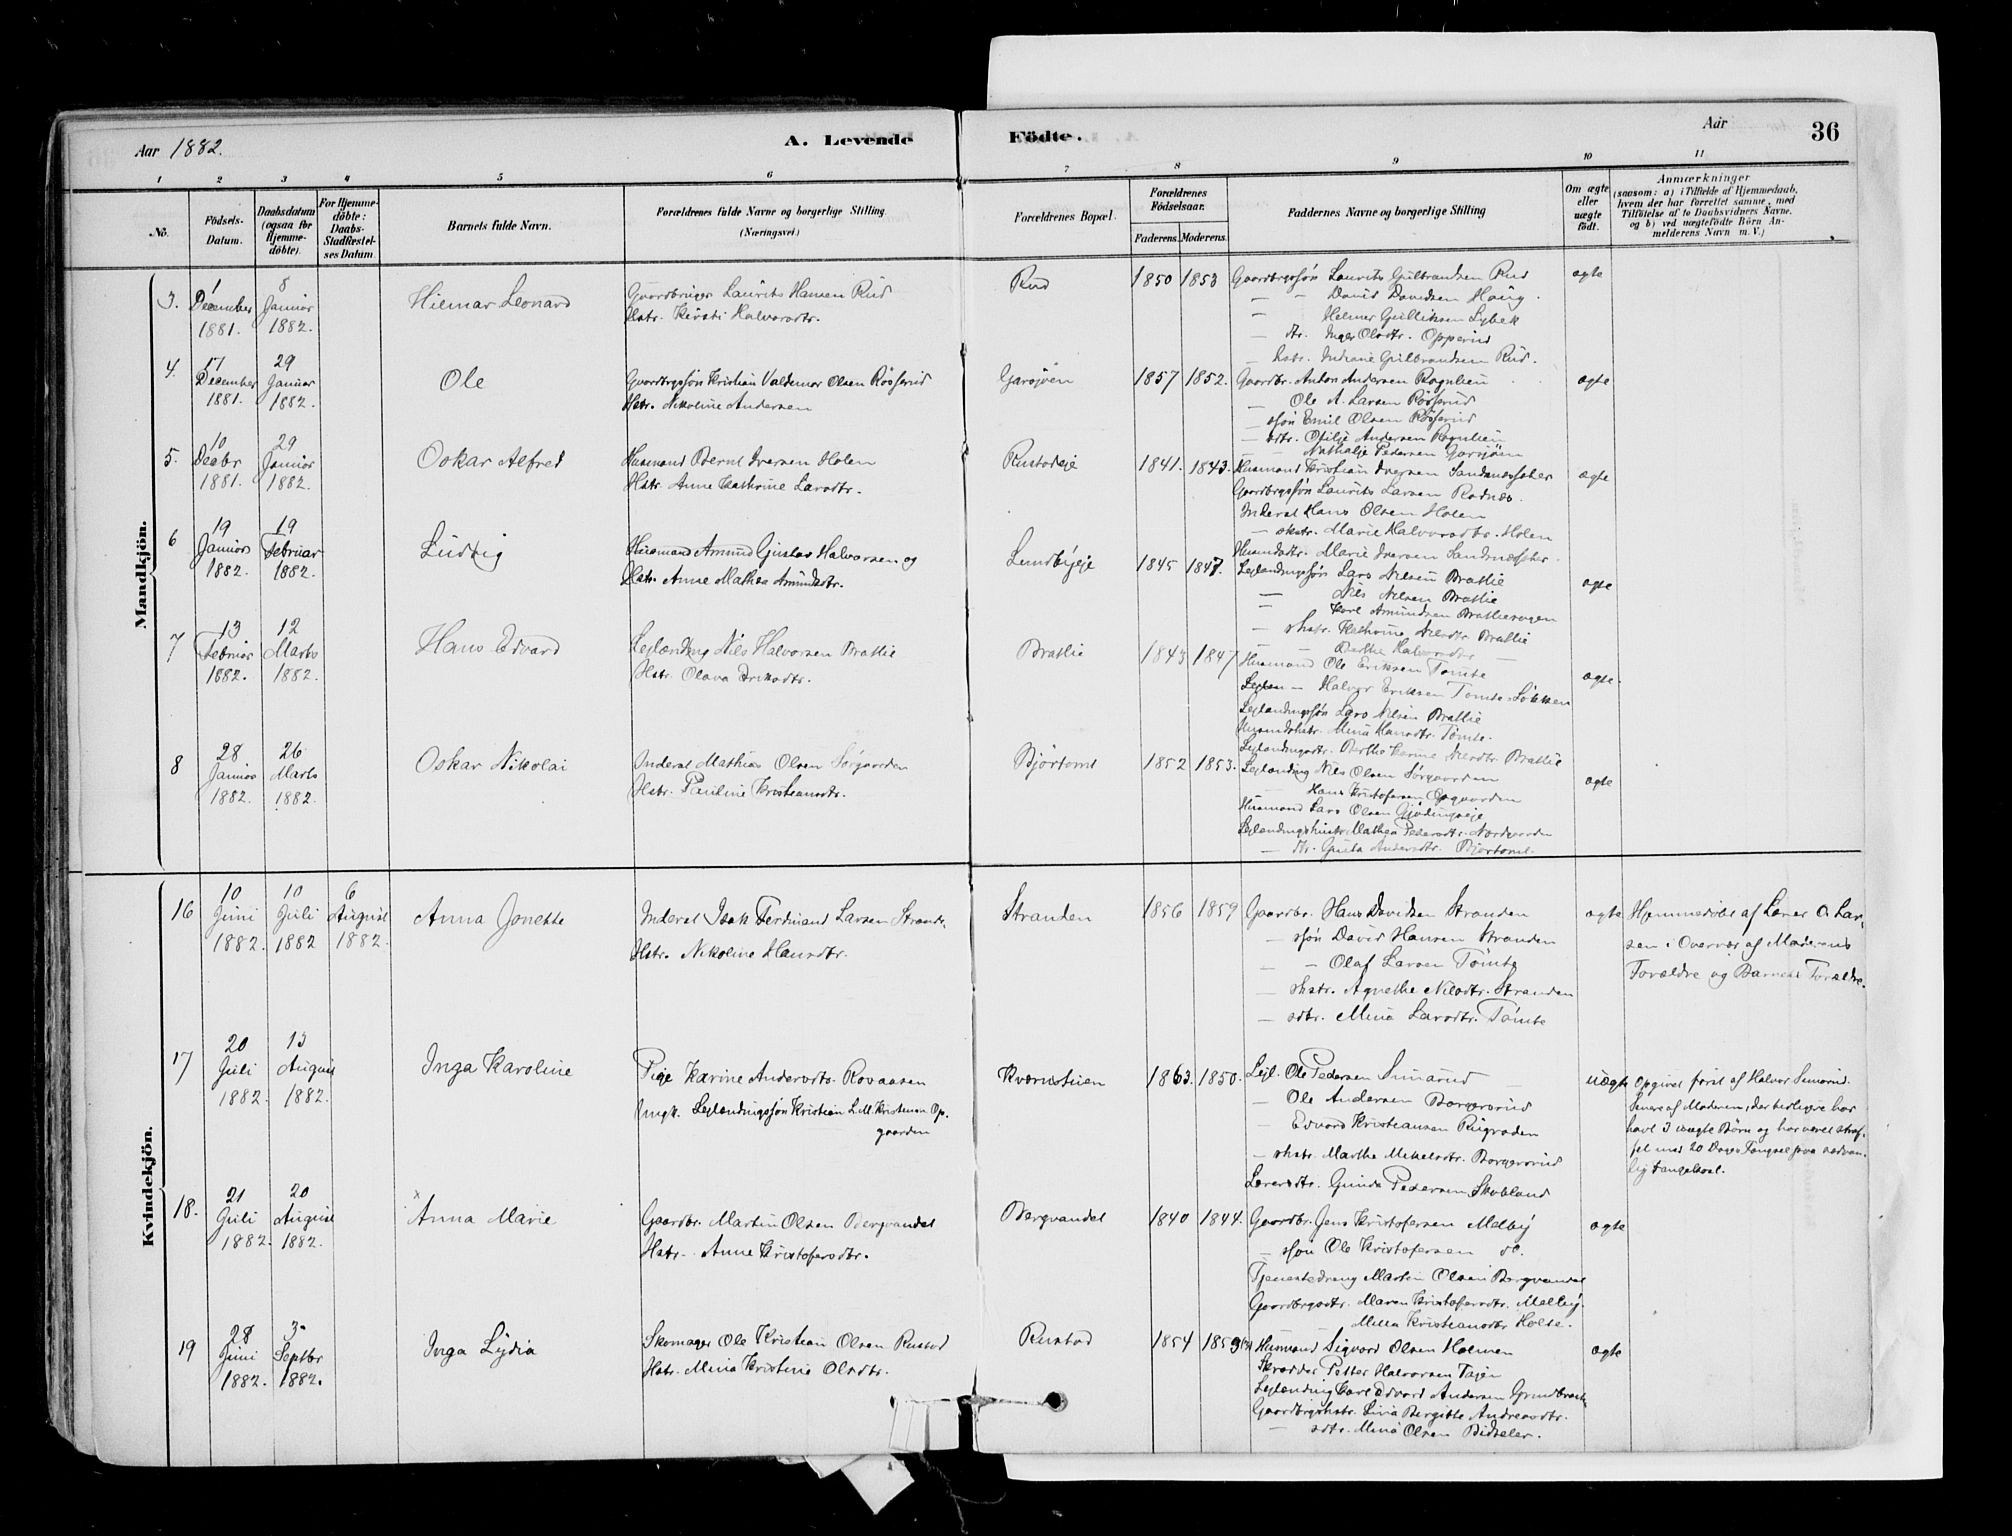 Aar 1882.
A. Levende
Födte.
Aar
36
1 2 3 4 5 6 7 8 9 10 11
No.
Födsels-Datum.
Daabsdatum (ogsaa for Hjemmedöbte).
For Hjemmedöbte: Daabs-Stadfæstelses Datum.
Barnets fulde Navn.
Forældrenes fulde Navne og borgerlige Stilling (Næringsvei.)
Forældrenes Bopæl.
Forældrenes Födselsaar.
Faderens. Moderens.
Faddernes Navne og borgerlige Stilling
Om ægte eller uægte födt.
Anmærkninger
(saasom: a) i Tilfælde af Hjemmedaab, hvem der har forrettet samme, med Tilföielse af to Daabsvidners Navne. og b) ved uægtefödte Börn Anmelderens Navn m. V.)
Mandkjön.
3. 1 December 1881. 8 Januar 1882. Hilmar Leonard
Gaardbruger Laurits Hansen Rud
Hstr. Kirsti Halvorsdtr.
Rud 1850 1853
Gaardbrgssøn Laurits Gulbrandsen Rud
— — David Davidsen Haug.
— — Helmer Gulliksen Lybek
— dtr. Inger Olsdtr. Opperud
— hstr. Indiane Gulbrandsen Rud.
ægte
4. 17 December 1881. 29 Januar 1882. Ole
Gaardbrgssøn Kristian Valdemar Olsen Rösserud
Hstr. Nikoline Andersen
Garsjøen 1857 1852.
Gaardbr. Anton Andersen Rognlien
— Ole A. Larsen Rösserud
— ssøn Emil Olsen Rösserud
— sdtr. Otilje Andersen Rognlien
— — Nathalje Pedersen Garsjøen
ægte
5. 10 Decbr 1881. 29 Januar 1882. Oskar Alfred
Husmand Bernt Iversen Holen
Hstr. Anne Kathrine Larsdtr.
Rustadeje 1841. 1843.
Husmand Kristian Iversen
Gaardbrgssøn Laurits Larsen Rudnæs.
Inderst Hans Olsen Holen
— skstr. Marie Halvorsdtr. Holen
Husmdstr. Marie Iversen
ægte
6 19 Januar 1882. 19 Februar 1882. Ludvig
Husmand Amund Gustav Halvorsen og
Hstr. Anne Mathea Amundsdtr.
Lundbyeje 1845 1847.
Lejlændingssøn Lars Nilsen Bratlie
— Nils Nilsen Bratlie
— Karl Amundsen
— shstr. Kathrine Nilsdtr Bratlie
— — Berthe Halvorsdtr —
ægte
7 13 Februar 1882. 12 Marts 1882. Hans Edvard
Lejlænding Nils Halvorsen Bratlie
Hstr. Olava Eriksdtr.
Bratlie 1843 1847
Husmand Ole Eriksen Tømte
— Halvor Eriksen Tømte
Lejlændingssøn Lars Nilsen Bratlie
Husmdshstr. Mina Hansdtr. Tømte.
Lejlændingsdtr. Berthe Karine Nilsdtr. Bratlie
ægte.
8 28 Januar 1882. 26 Marts 1882. Oskar Nikolai
Inderst Mathias Olsen Sørgaarden
Hstr. Pauline Kristiansdtr.
Bjørtomt 1852 1853.
Lejlænding Nils Olsen Sørgaarden
— Hans Kristofersen Opgaarden
Husmand Lars Olsen
Lejlændingshustr. Mathea Pedersdtr. Nordgaarden
— dtr. Gusta Andersdtr. Bjørtomt.
ægte
Kvindekjön.
16 10 Juni 1882. 10 Juli 1882 6 August 1882. Anna Jonette
Inderst Isak Ferdinand Larsen Stranden
Hstr. Nikoline Hansdtr.
Stranden 1856 1859
Gaardbr. Hans Davidsen Stranden
— ssøn David Hansen Stranden
— — Olaf Larsen Tømte
— shstr. Agnethe Nilsdtr. Stranden
— sdtr. Mina Larsdtr. Tømte
ægte
Hjemmedøbt af Lærer O. Larsen
i Overvær af Moderens
Forældre og Barnets Forældre.
17 20 Juli 1882. 13 August 1882. Inga Karoline
Pige Karine Andersdtr. Rovaasen
Ungk. Lejlændingssøn Kristian L. M. Kristiansen Opgaarden
Kværnstuen 1863. 1850.
Lejl. Ole Pedersen Smarud
— Ole Andersen Borgersrud
— Edvard Kristiansen Rugraden
— shstr. Marthe Mikelsdtr. Borgersrud
Lærersdtr. Gunda Pedersen Skobland
uægte
Opgivet først af Halvor Smarud.
senere af Moderen, der tidligere har
havt 3 uægte Børn og har været straffet
med 20 Dages Fængsel paa sædvanlig
Fangekost.
18. 21 Juli 1882. 20 August 1882. × Anna Marie
Gaardbr. Martin Olsen Bergvandet
Hstr. Anne Kristofersdtr.
Bergvandet 1840 1844.
Gaardbr. Jens Kristofersen Melby
— ssøn Ole Kristofersen do.
Tjenestedreng Martin Olsen Bergvandet
Gaardbrgsdtr. Maren Kristofersdtr. Melby.
Milla Kristiansdtr Holte.
ægte
19 28 Juni 1882. 3 Septbr 1882. Inga Lydia
Skomager Ole Kristian Olsen Rustad
Hstr. Mina Kristine Olsdtr.
Rustad 1854 1859
Husmand Sigvard Olsen Holmen
Skrædder Petter Halvorsen Tajen
Lejlænding Karl Edvard Andersen
Gaardbrgshstr. Lina Bergitte Andreasdtr.
— sdtr. Mina Olsen Bidseler.
ægte